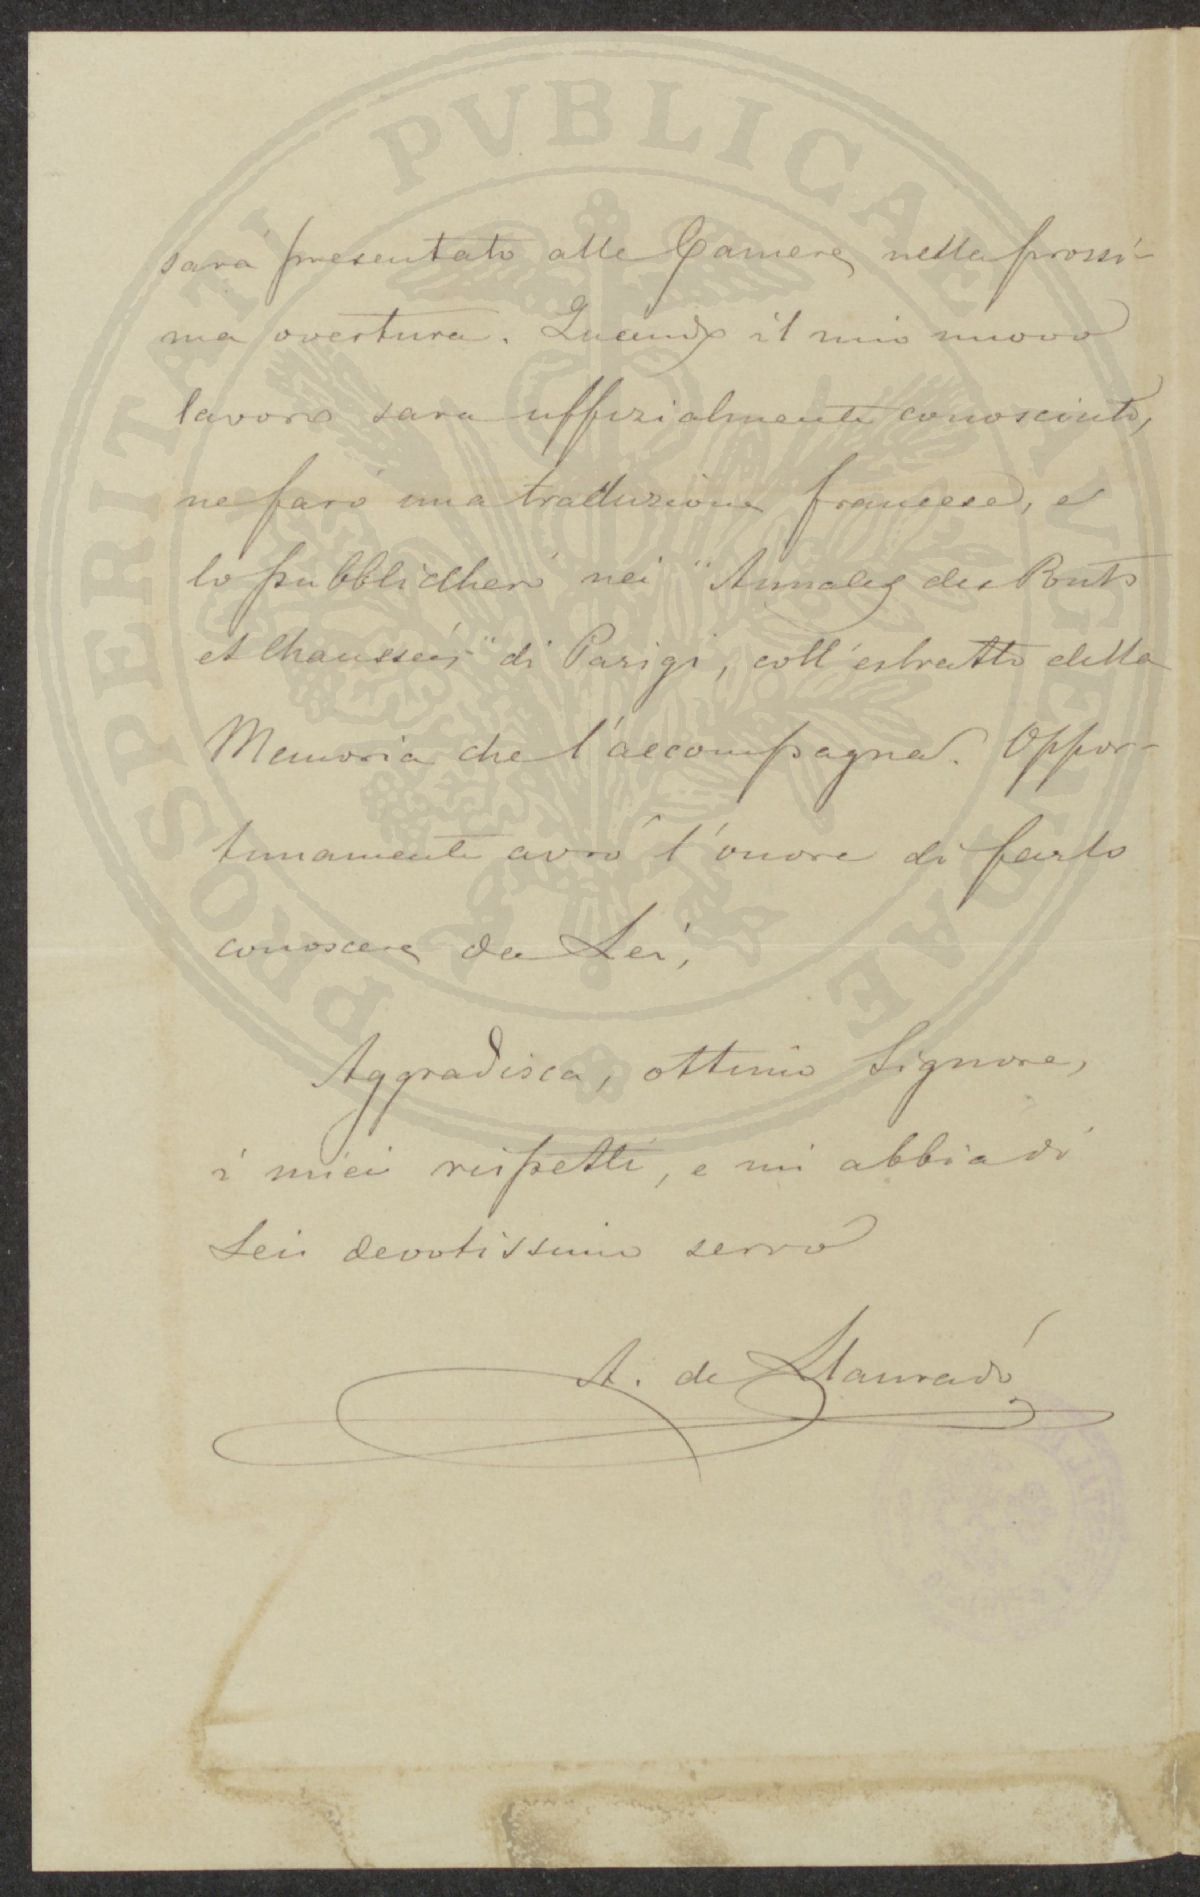 PROSPERITATI PVBLICAE AVGENDAE
sarà presentato alle Camere nella prossi-
ma overtura. Quando il mio nuovo
lavoro sara uffizialmente conosciuto,
ne farò una traduzione francese, e
lo pubblicherò nei "Annales des Ponts
et Chaussées" di Parigi, coll'estratto della
Memoria che l'accompagna. Oppor-
tunamente avrò l'onore di farlo
conoscere da Lei,
Aggradisca, ottimo Signore,
i miei rispetti, e mi abbia di
Lei devotissimo servo
A. de Llauradó